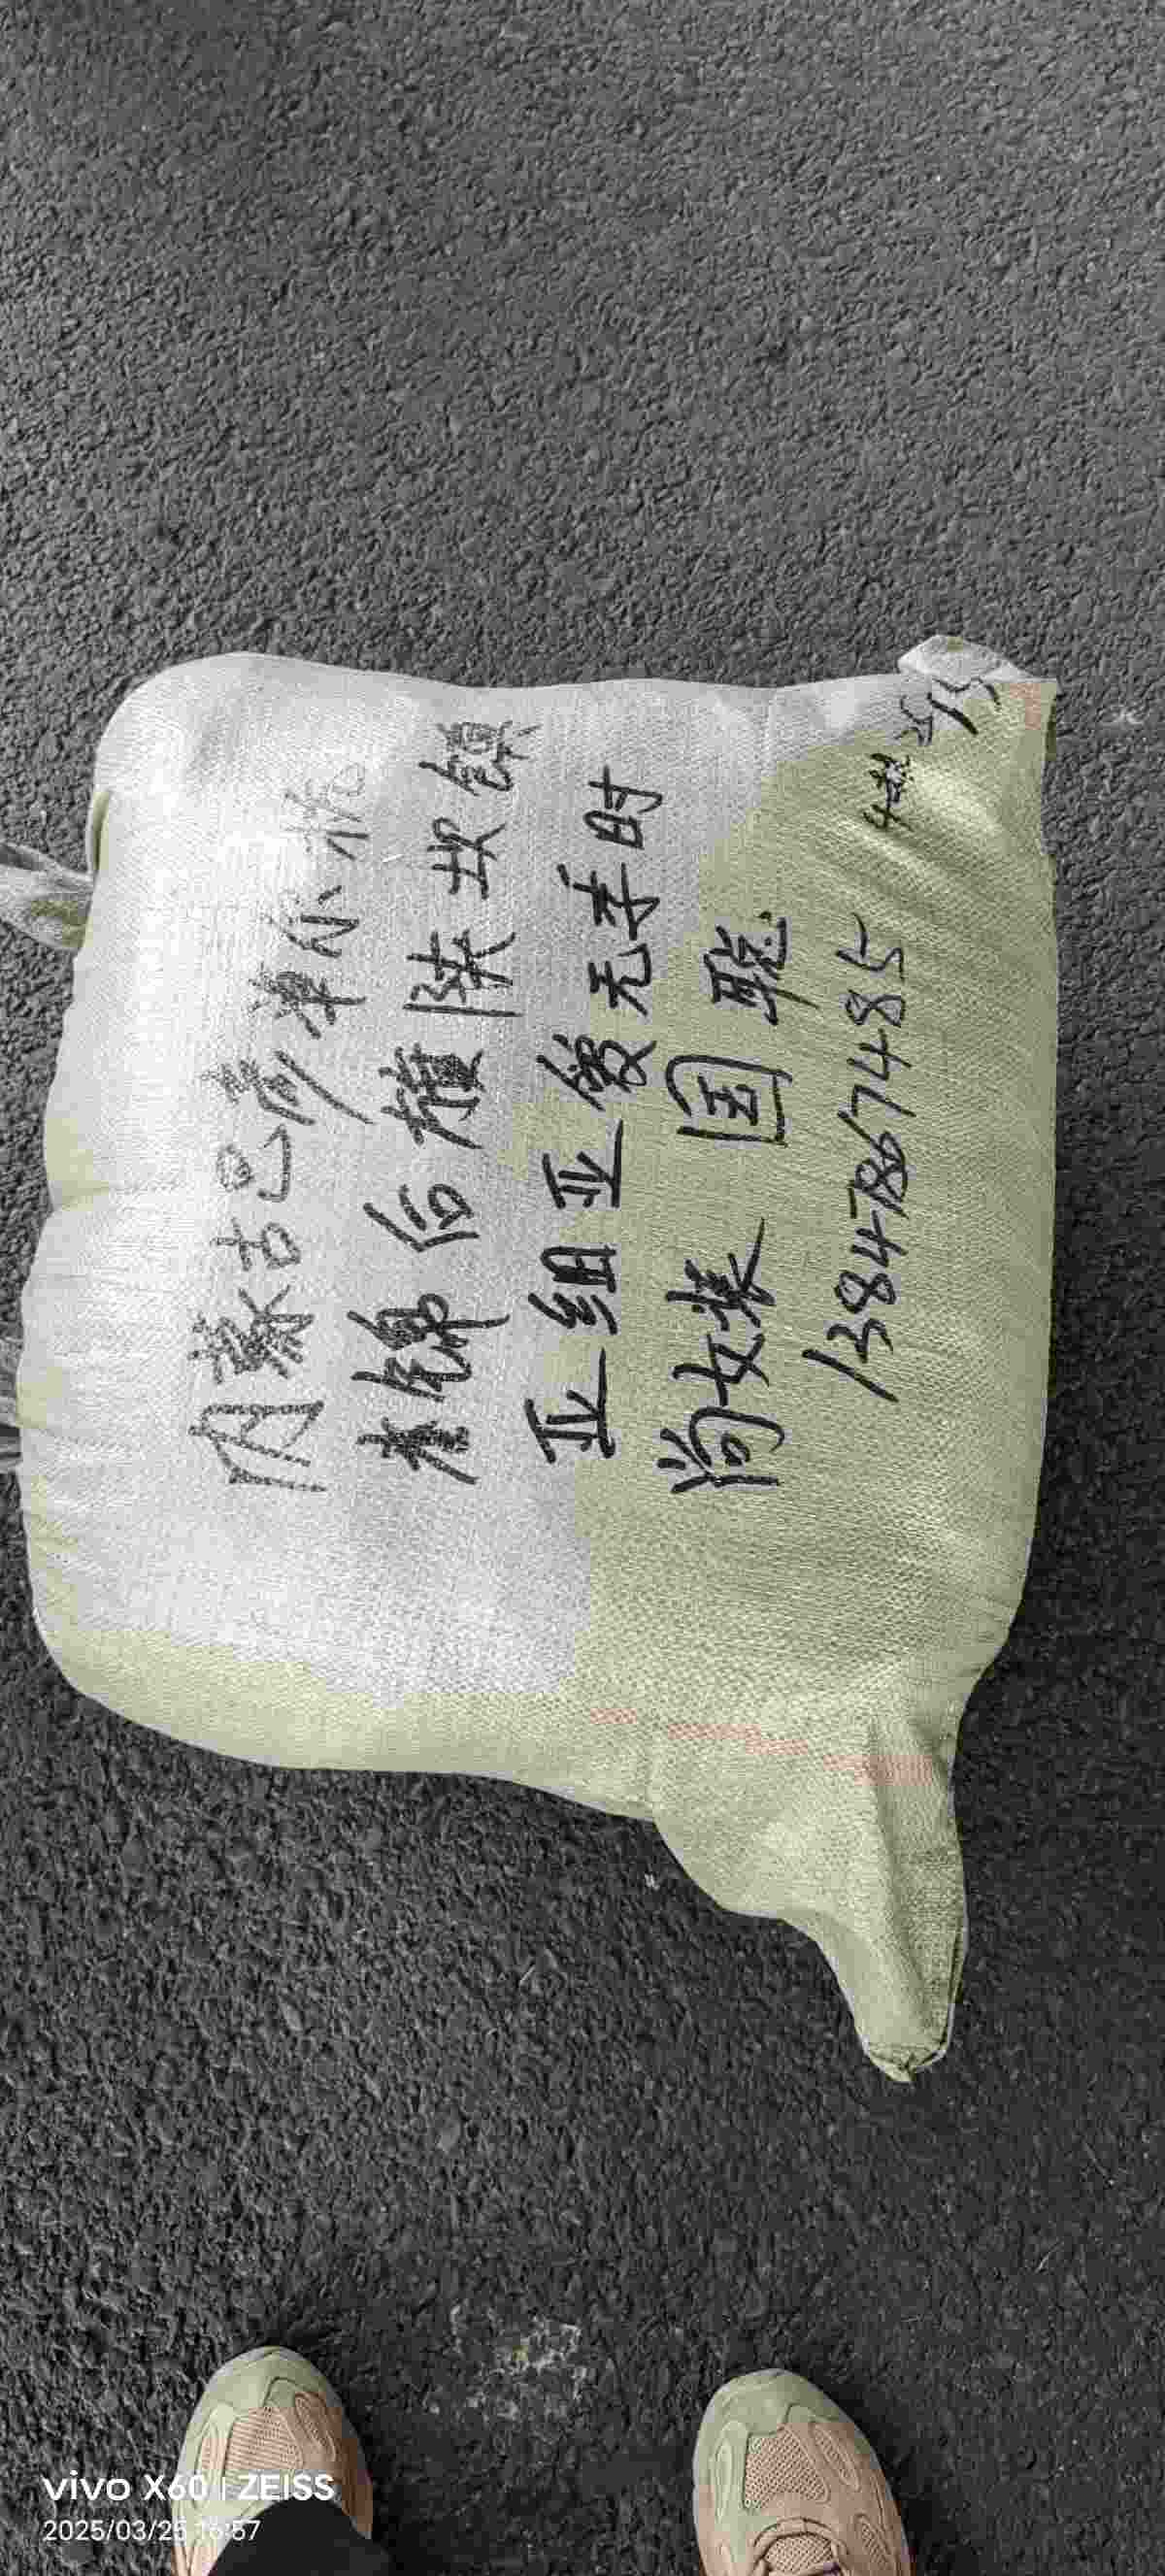 内蒙古巴彦淖尔市
杭锦后旗陕坝镇
亚组亚 无手时
尚女装 国聪
13847867485
vivo X60 | ZEISS
2025/03/25 16:57